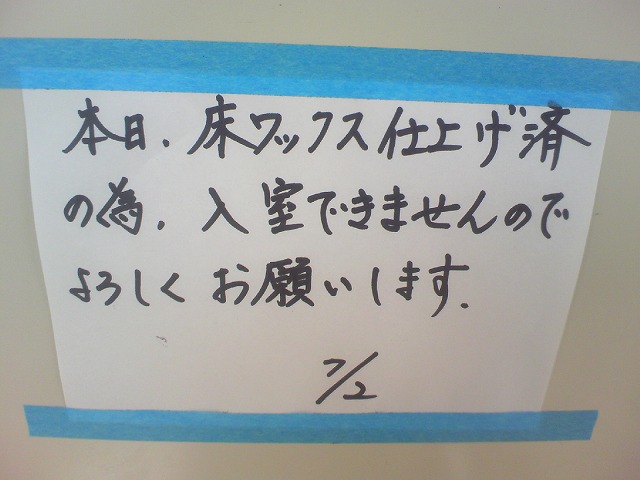 本日、床ワックス仕上げ済
の為、入室できませんので
よろしくお願いします.
7/2